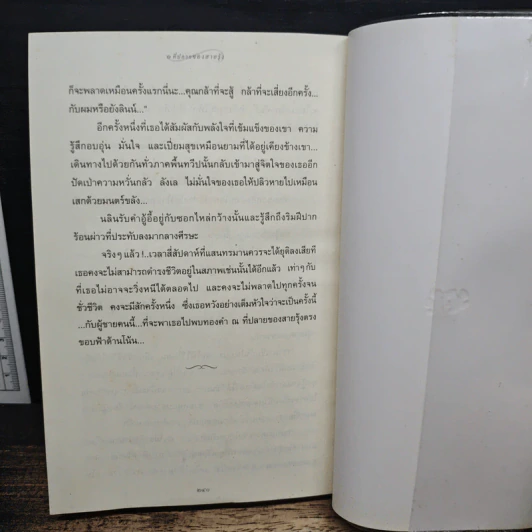 ณ ที่ปลายของสายรุ้ง
ก็จะพลาดเหมือนครั้งแรกนี่นะ...คุณกล้าที่จะสู้ กล้าที่จะเสี่ยงอีกครั้ง...
กับผมหรือยังลินน์..."
อีกครั้งหนึ่งที่เธอได้สัมผัสกับพลังใจที่เข้มแข็งของเขา ความ
รู้สึกอบอุ่น มั่นใจ และเปี่ยมสุขเหมือนยามที่ได้อยู่เคียงข้างเขา...
เดินทางไปด้วยกันทั่วภาคพื้นทวีปนั้นกลับเข้ามาสู่จิตใจของเธออีก
ปัดเป่าความหวั่นกลัว ลังเล ไม่มั่นใจของเธอให้ปลิวหายไปเหมือน
เสกด้วยมนตร์ขลัง...
นลินรับคำอู้อี้อยู่กับซอกไหล่กว้างนั้นและรู้สึกถึงริมฝีปาก
ร้อนผ่าวที่ประทับลงมากลางศีรษะ
จริงๆ แล้ว!..เวลาสี่สัปดาห์ที่แสนทรมานควรจะได้ยุติลงเสียที
เธอคงจะไม่สามารถดำรงชีวิตอยู่ในสภาพเช่นนั้นได้อีกแล้ว เท่าๆ กับ
ที่เธอไม่อาจจะวิ่งหนีได้ตลอดไป และคงจะไม่พลาดไปทุกครั้งจน
ชั่วชีวิต คงจะมีสักครั้งหนึ่ง ซึ่งเธอหวังอย่างเต็มหัวใจว่าจะเป็นครั้งนี้
...กับผู้ชายคนนี้...ที่จะพาเธอไปพบทองคำ ณ ที่ปลายของสายรุ้งตรง
ขอบฟ้าด้านโน้น...